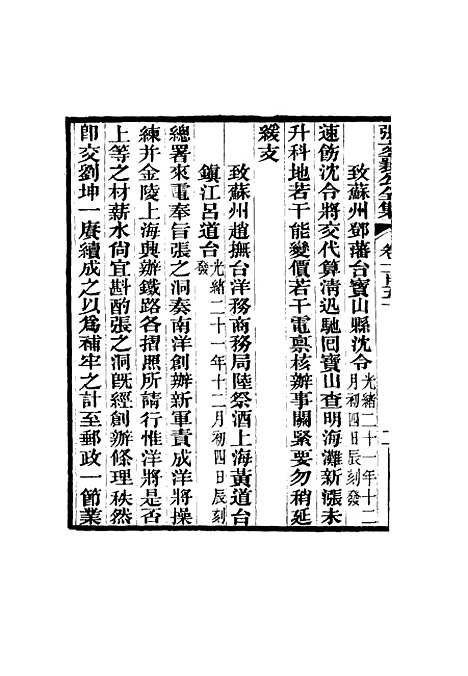 致蘇州鄧藩台寶山縣沈令 光緒二十一年十二月初四日辰刻發
速飭沈令將交代算清迅馳回寶山查明海灘新漲未
升科地若干能變價若干電禀核辦事關緊要勿稍延
緩支
致蘇州趙撫台洋務商務局陸祭酒上海黃道台
鎮江呂道台 光緒二十一年十二月初四日辰刻發
總署來電奉旨張之洞奏南洋創辦新軍責成洋將操
練并金陵上海興辦鐵路各摺照所請行惟洋將是否
上等之材薪水尙宜斟酌張之洞旣經創辦條理秩然
卽交劉坤一賡續成之以爲補牢之計至郵政一節業